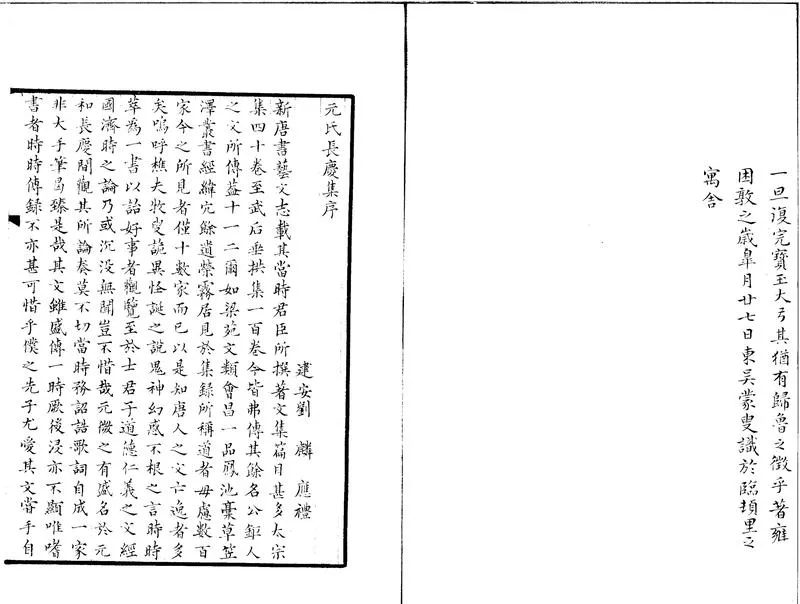 一旦復完寶玉大弓其猶有歸魯之徵乎著雍
困敦之歲皐月廿七日東吳蒙叟識於臨頓里之
寓舍
元氏長慶集序
建安劉麟應禮
新唐書藝文志載其當時君臣所撰著文集篇目甚多太宗
集四十卷至武后垂拱集一百卷今皆弗傳其餘名公鉅人
之文所傳葢十一二爾如梁苑文類會昌一品鳳池藁草笠
澤叢書經緯宂餘遺榮霧居見於集録所稱道者毋慮數百
家今之所見者僅十數家而已以是知唐人之文亡逸者多
矣嗚呼樵夫牧叟詭異怪誕之說鬼神幻惑不根之言時時
萃為一書以詒好事者觀覽至於士君子道德仁義之文經
國濟時之論乃或沉没無聞豈不惜哉元微之有盛名於元
和長慶間觀其所論奏莫不切當時務詔誥歌詞自成一家
非大手筆曷臻是哉其文雖盛傳一時厥後浸亦不顯唯嗜
書者時時傳録不亦甚可惜乎僕之先子尤愛其文嘗手自